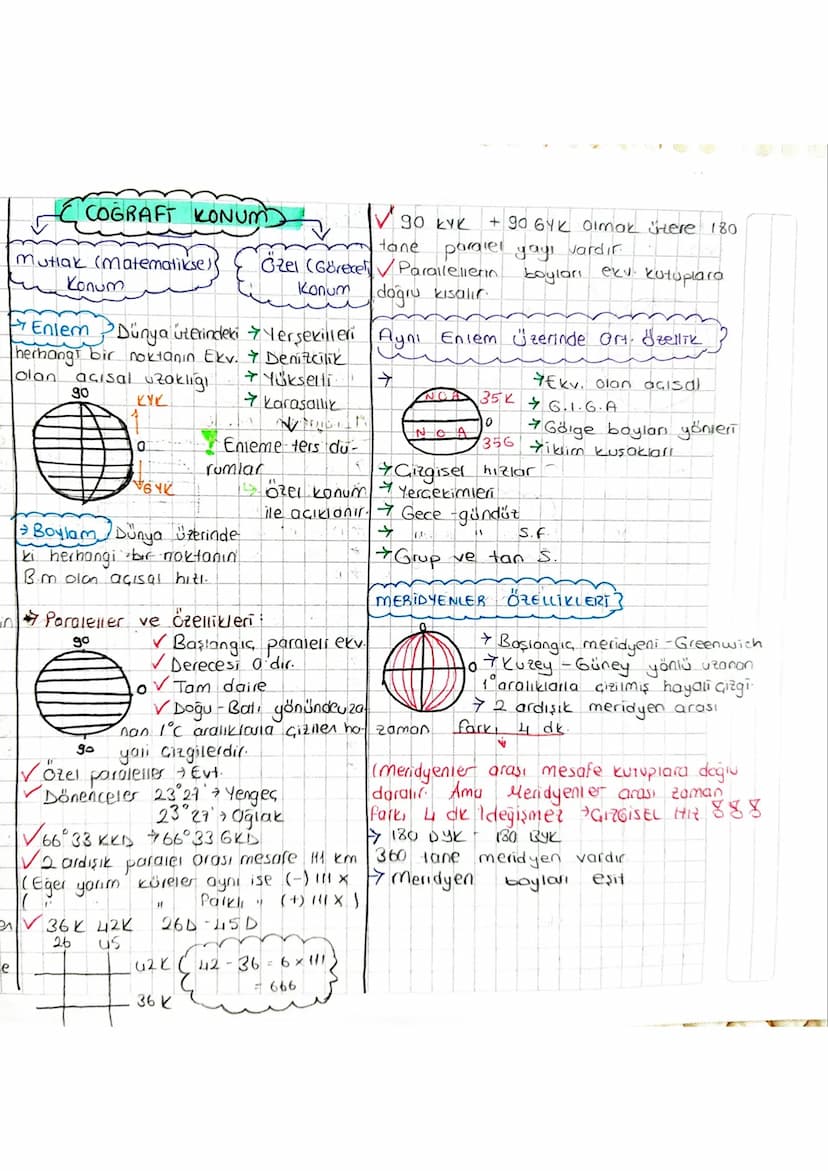 COĞRAFİ KONUM
Mutlak (Matematiksel)
Konum
Özel (Göreceli
Konum
→ Enlem
Dünya üzerindeki
herhangi bir noktanın Ekv.
olan açısal uzaklığı
90
KYK
0
GYK
→ Yerşekilleri
→ Denizcilik
→ Yükselti
→ Karasallık
! Enleme ters du-
rumlar
↳ Özel konum
ile açıklanır.
→ Boylam
Dünya üzerinde
ki herhangi bir noktanın
B.m olan açısal hızı.
→ Paraleller ve Özellikleri:
90
0
90
✓ Başlangıç paraleli ekv.
✓ Derecesi 0'dır.
✓ Tam daire
✓ Doğu - Batı yönünde uza
nan 1°C aralıklarla çizilen ha-
yali çizgilerdir.
✓ Özel paraleller → Evt.
✓ Dönenceler 23°27' → Yengeç
23°27' → Oğlak
✓ 66°33 KKD → 66°33 GKD
✓ 2 ardışık paralel arası mesafe 111 km
(Eğer yarım küreler aynı ise (-) 111 x
( " " farklı " (+) 111 x )
✓ 36K 42K 26D - 45D
26 45
42K
36K
42 - 36 = 6 x 111
= 666
✓ 90 KYK + 90 GYK olmak üzere 180
tane paralel yayı vardır.
✓ Parallellerin boyları ekv. kutuplara
doğru kısalır.
Aynı Enlem Üzerinde Ort. Özellik
→
NOA 35K
0
NOA 35G
→ Ekv. olan açısal
→ G.I.G.A
→ Gölge boyları yönleri
→ iklim kuşakları
→ Çizgisel hızlar
→ Yerçekimleri
→ Gece - gündüz
→ " " S.f.
→ Grup ve tan S.
MERİDYENLER ÖZELLİKLERİ
0
→ Başlangıç meridyeni - Greenwich
→ Kuzey - Güney yönlü uzanan
1° aralıklarla çizilmiş hayali çizgi.
→ 2 ardışık meridyen arası
zaman farkı 4 dk.
(Meridyenler arası mesafe kutuplara doğru
daralır. Ama Meridyenler arası zaman
farkı 4 dk !değişmez → ÇİZGİSEL HIZ
→ 180 DYK - 180 BYK
360 tane meridyen vardır
→ Meridyen boyları eşit